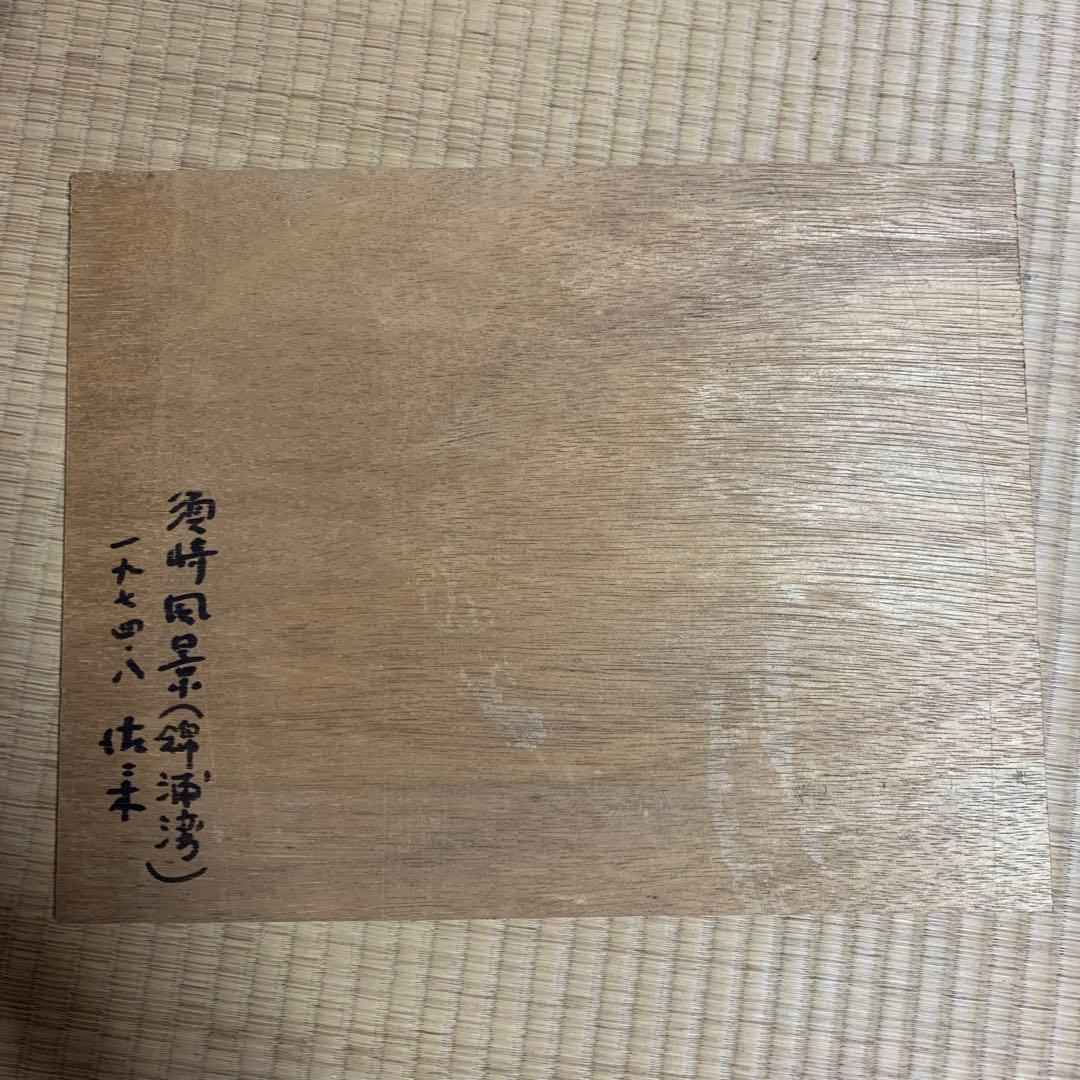 須崎風景(錦浦湾)
一九七四.八 佐三木